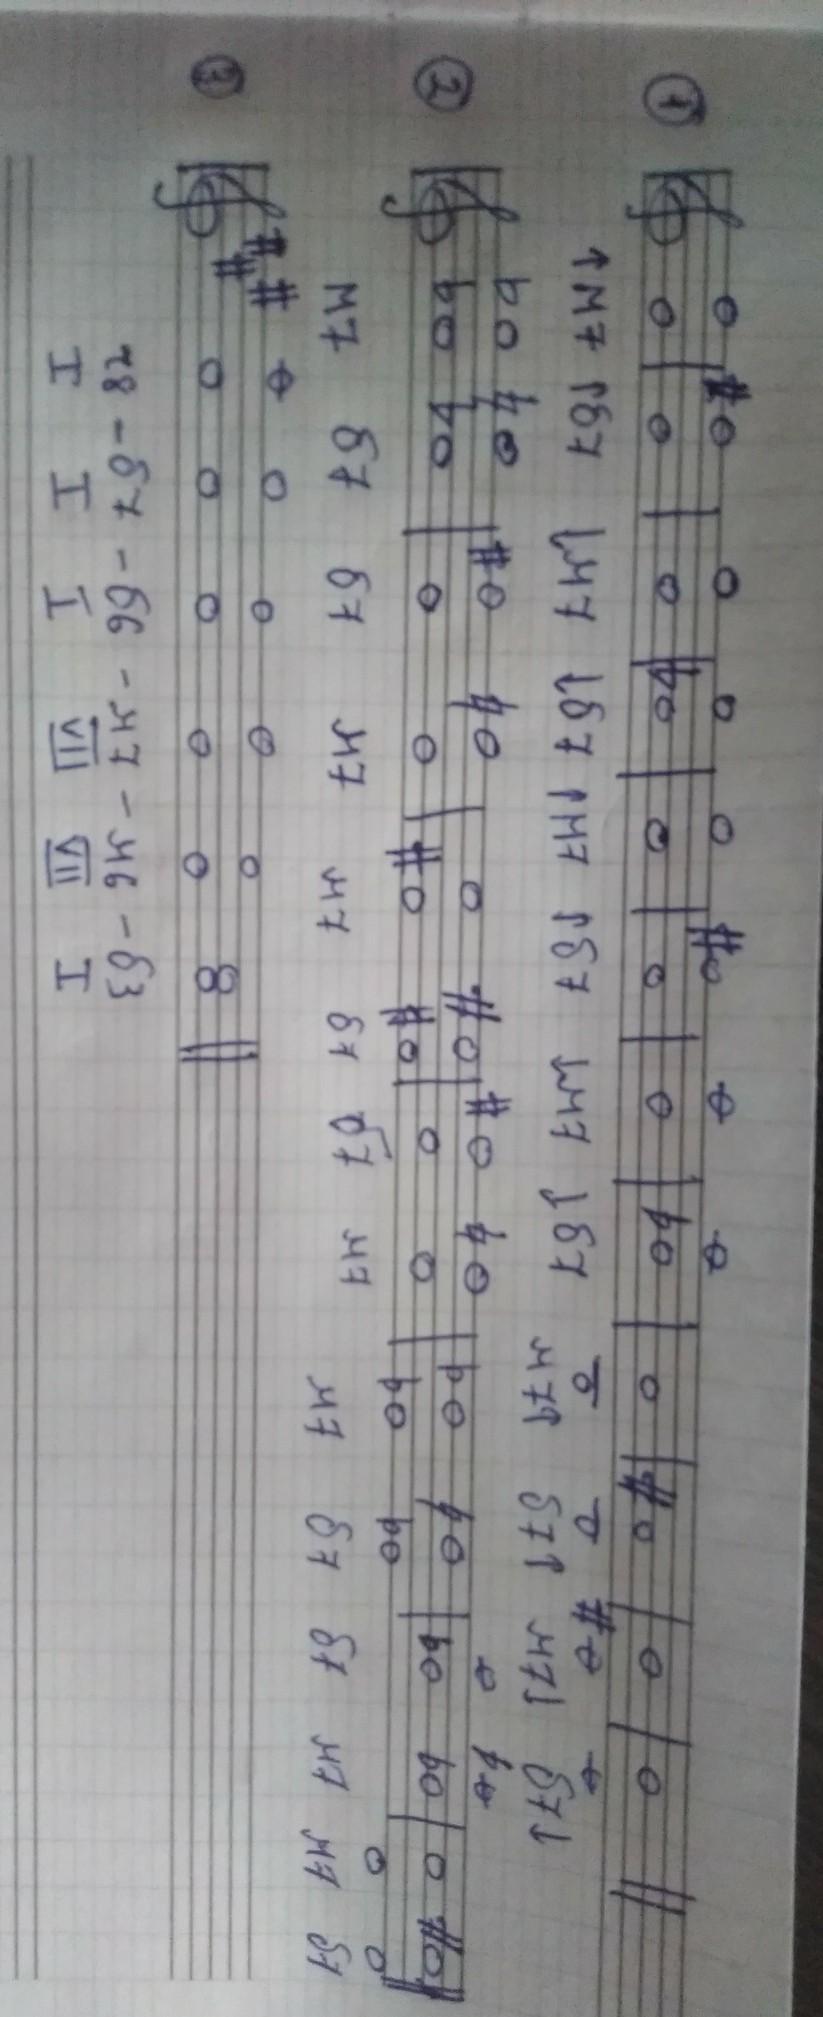 1
↑м7 ↑б7 ↓м7 ↓б7 ↑м7 ↑б7 ↓м7 ↓б7 м7↑ б7↑ м7↓ б7↓
2
м7 б7 б7 м7 м7 б7 б7 м7 м7 б7 б7 м7 м7 б7
3
ч8 - б7 - б6 - м7 - м6 - б3
I I I VII VII I